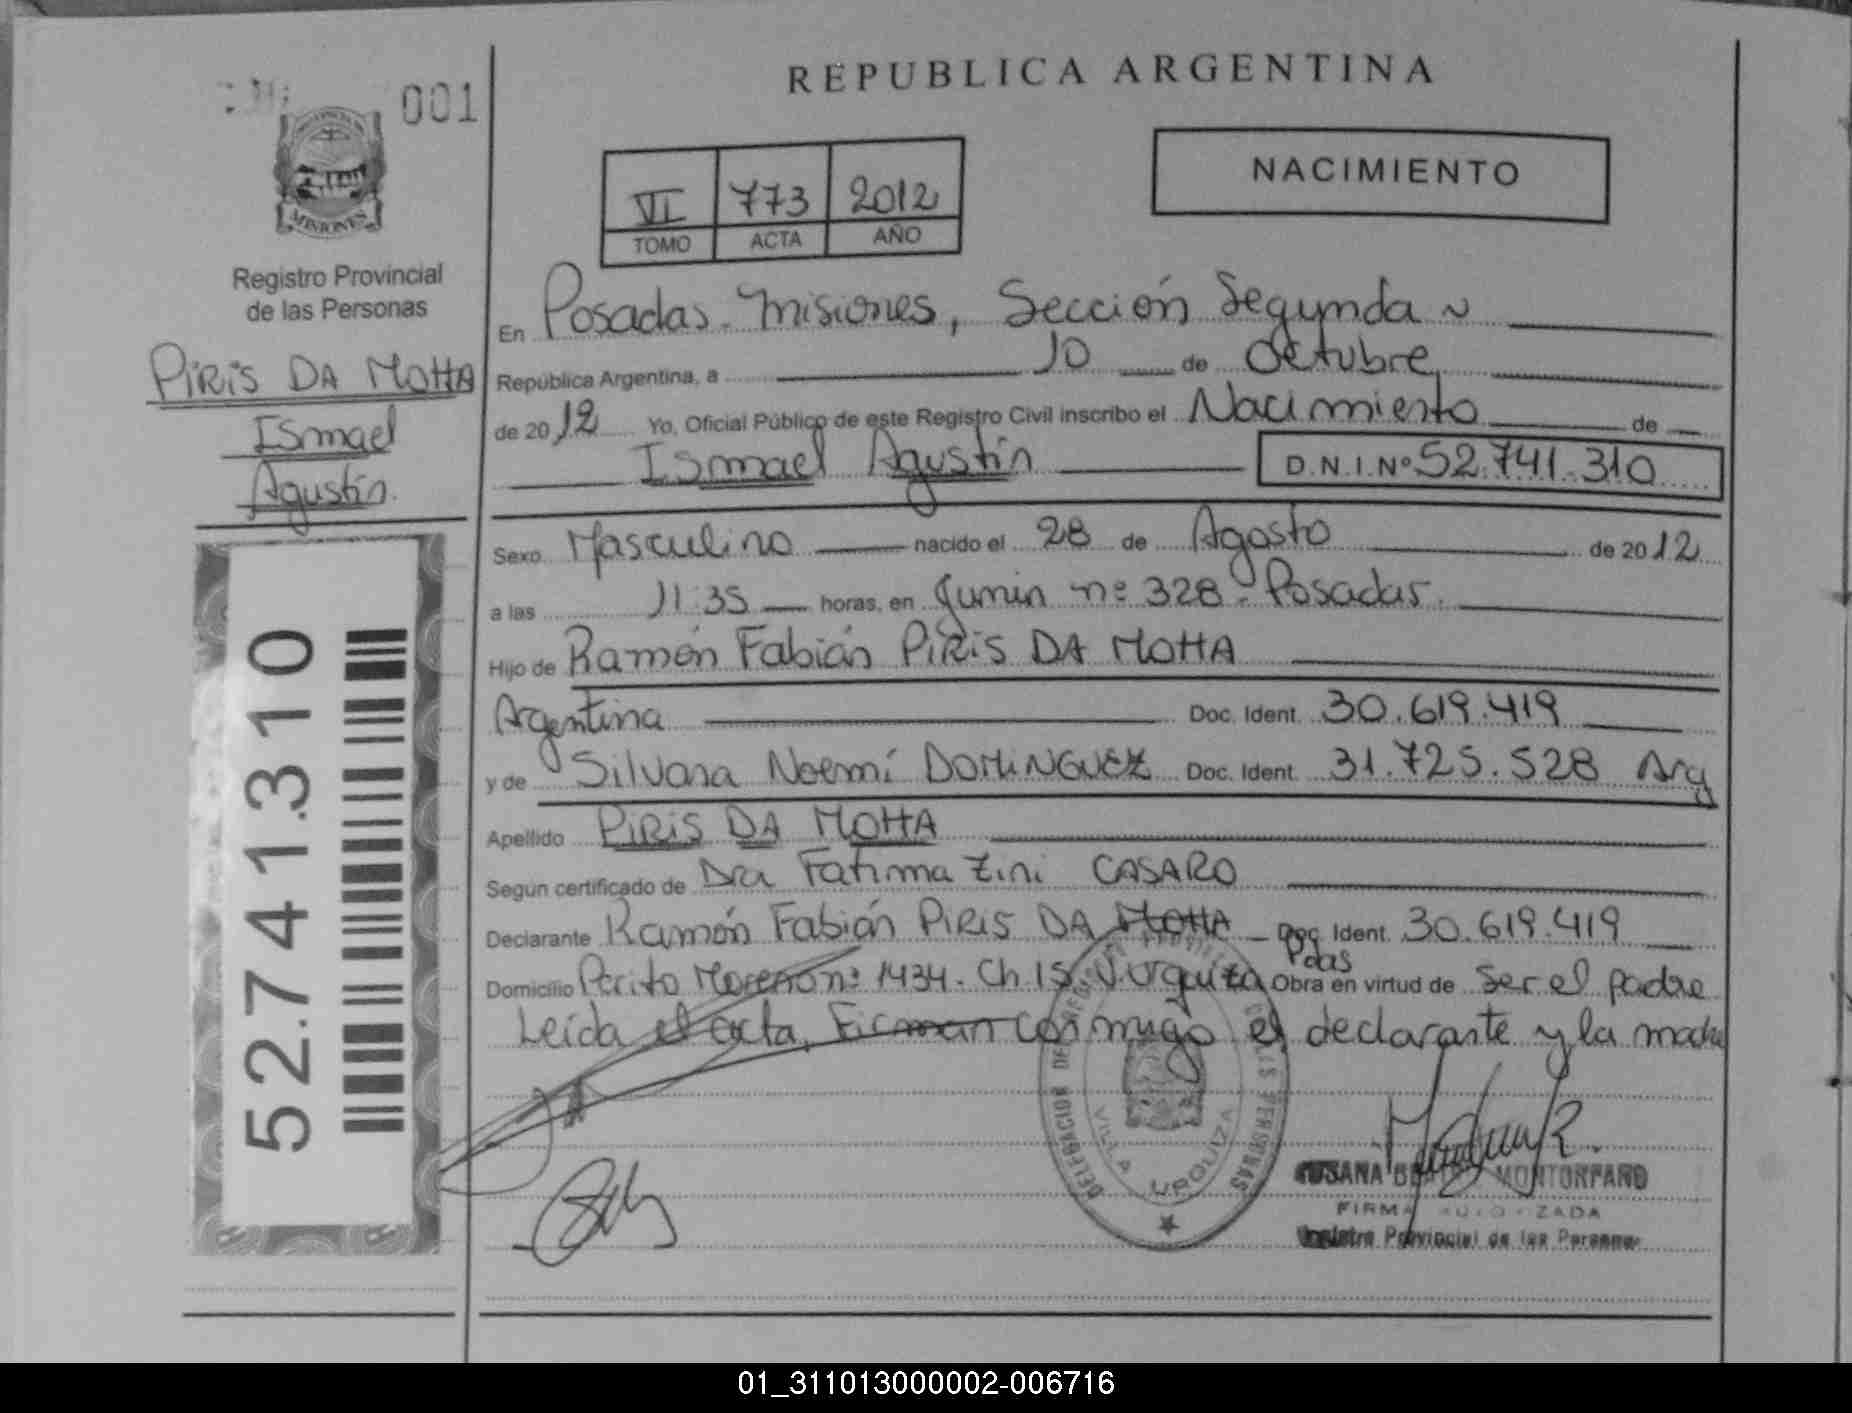 001
MISIONES
Registro Provincial
de las Personas
PIRIS DA MOTTA
Ismael
Agustín.
52.741.310
REPUBLICA ARGENTINA
NACIMIENTO
VI 773 2012
TOMO ACTA AÑO
En Posadas. Misiones, Sección Segunda
República Argentina, a 10 de Octubre
de 2012 Yo, Oficial Público de este Registro Civil inscribo el Nacimiento de
Ismael Agustín D.N.I.Nº 52.741.310
Sexo Masculino nacido el 28 de Agosto de 2012
a las 11:35 horas, en Junin nº 328. Posadas.
Hijo de Ramón Fabián PIRIS DA MOTTA
Argentina Doc. Ident. 30.619.419
y de Silvana Noemí DOMINGUEZ Doc. Ident. 31.725.528 Arg
Apellido PIRIS DA MOTTA
Según certificado de Dra Fatima Zini CASARO
Declarante Ramón Fabián PIRIS DA MOTTA Doc. Ident. 30.619.419
Domicilio Perito Moreno nº 1434. Ch 15. V. Urquiza Pdas Obra en virtud de ser el padre
Leída el acta, Firman conmigo el declarante y la madre
DELEGACION DEL REGISTRO PROVINCIAL DE LAS PERSONAS
VILLA URQUIZA
SUSANA BEATRIZ MONTORFANO
FIRMA AUTORIZADA
Registro Provincial de las Personas
01_311013000002-006716